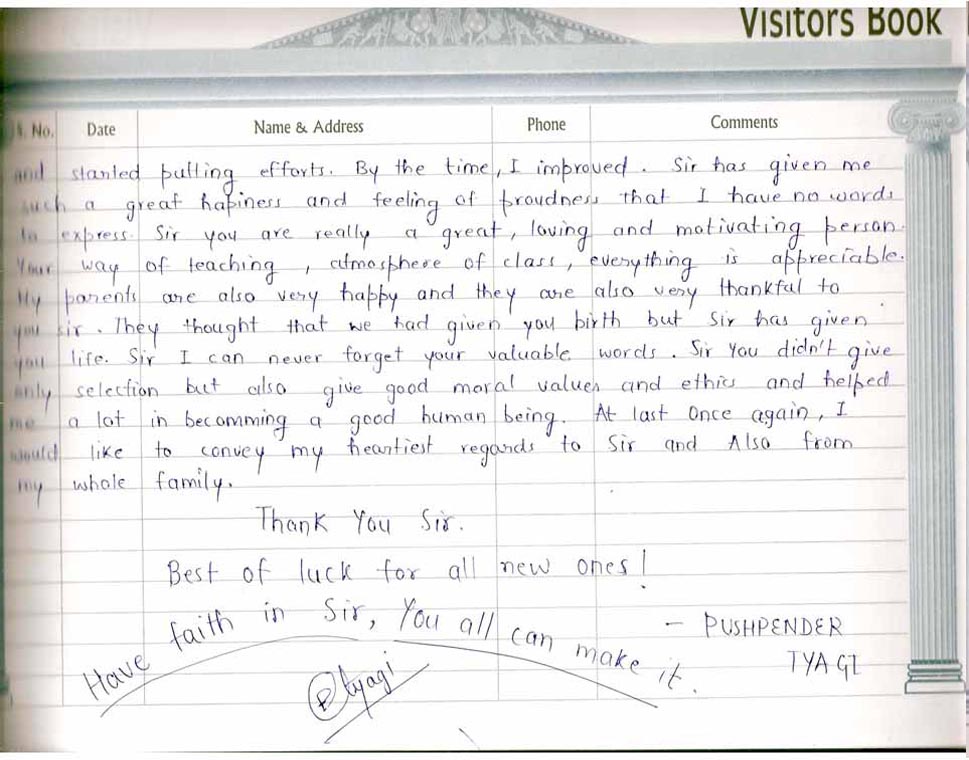 VISITORS BOOK
S. No. Date Name & Address Phone Comments
and started putting efforts. By the time, I improved. Sir has given me
such a great hapiness and feeling of proudness that I have no words
to express. Sir you are really a great, loving and motivating person.
Your way of teaching, atmosphere of class, everything is appreciable.
My parents are also very happy and they are also very thankful to
you sir. They thought that we had given you birth but Sir has given
you life. Sir I can never forget your valuable words. Sir You didn't give
only selection but also give good moral values and ethics and helped
me a lot in becomming a good human being. At last Once again, I
would like to convey my heartiest regards to Sir and Also from
my whole family.
Thank You Sir.
Best of luck for all new ones!
Have faith in Sir, You all can make it.
- PUSHPENDER
TYAGI
Ptyagi